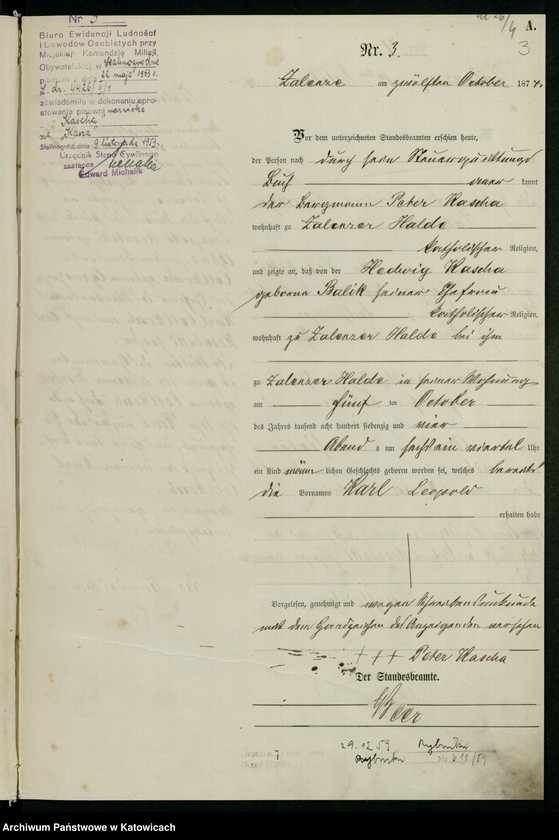 Nr 3
Biuro Ewidencji Ludności
i Dowodów Osobistych przy
Miejskiej Komendzie Milicji
Obywatelskiej w Stalinogrodzie
pismem z dnia 22 maja 1953 r.
L. dz. 4426/II/1
zawiadomiło o dokonaniu spro-
stowania pisowni nazwiska
"Kascha"
na "Kasza"
Stalinogród, dnia 9 listopada 1953 r.
Urzędnik Stanu Cywilnego
zastępca
Edward Michalik
A.
3
Nr. 3.
Zalenze am zwölften October 1874.
Vor dem unterzeichneten Standesbeamten erschien heute,
der Person nach durch sein Steuerquittungs
Buch aner kannt
der Bergmann Peter Kascha
wohnhaft zu Zalenzer Halde
katholischer Religion,
und zeigte an, daß von der Hedwig Kascha
geborne Balik seiner Ehefrau
katholischer Religion,
wohnhaft zu Zalenzer Halde bei ihm
zu Zalenzer Halde in seiner Wohnung
am fünf ten October
des Jahres tausend acht hundert siebenzig und vier
Abend s um sechs ein viertel Uhr
ein Kind männ lichen Geschlechts geboren worden sei, welches bereits
die Vornamen Karl Leopold
erhalten habe
Vorgelesen, genehmigt und wegen Schreibensunkunde
mit dem Handzeichen des Anzeigenden versehen
+++ Peter Kascha
Der Standesbeamte.
29.12.59
Rybnik
Rybnik
Nr 611/59
7
Archiwum Państwowe w Katowicach